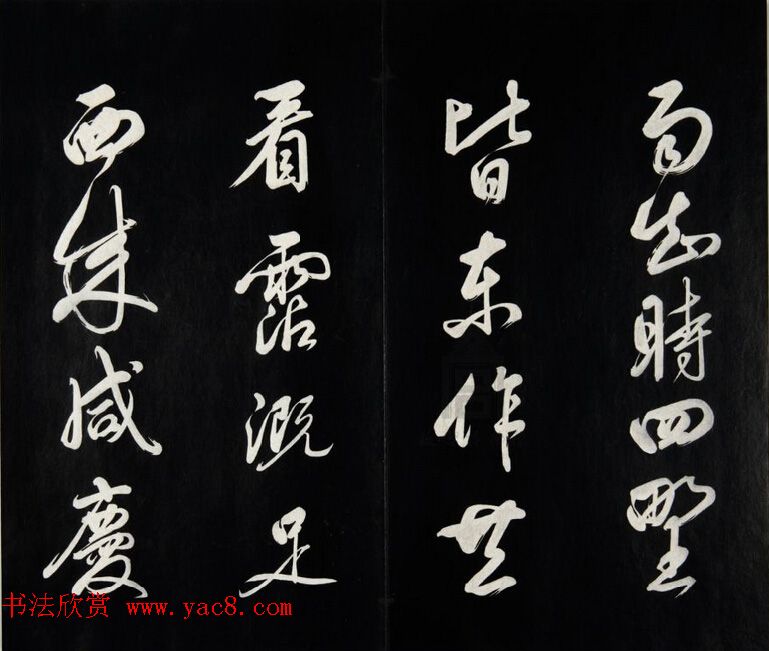 雨知時四野
皆東作共
看霑溉足
西成咸慶
书法欣赏 www.yac8.com